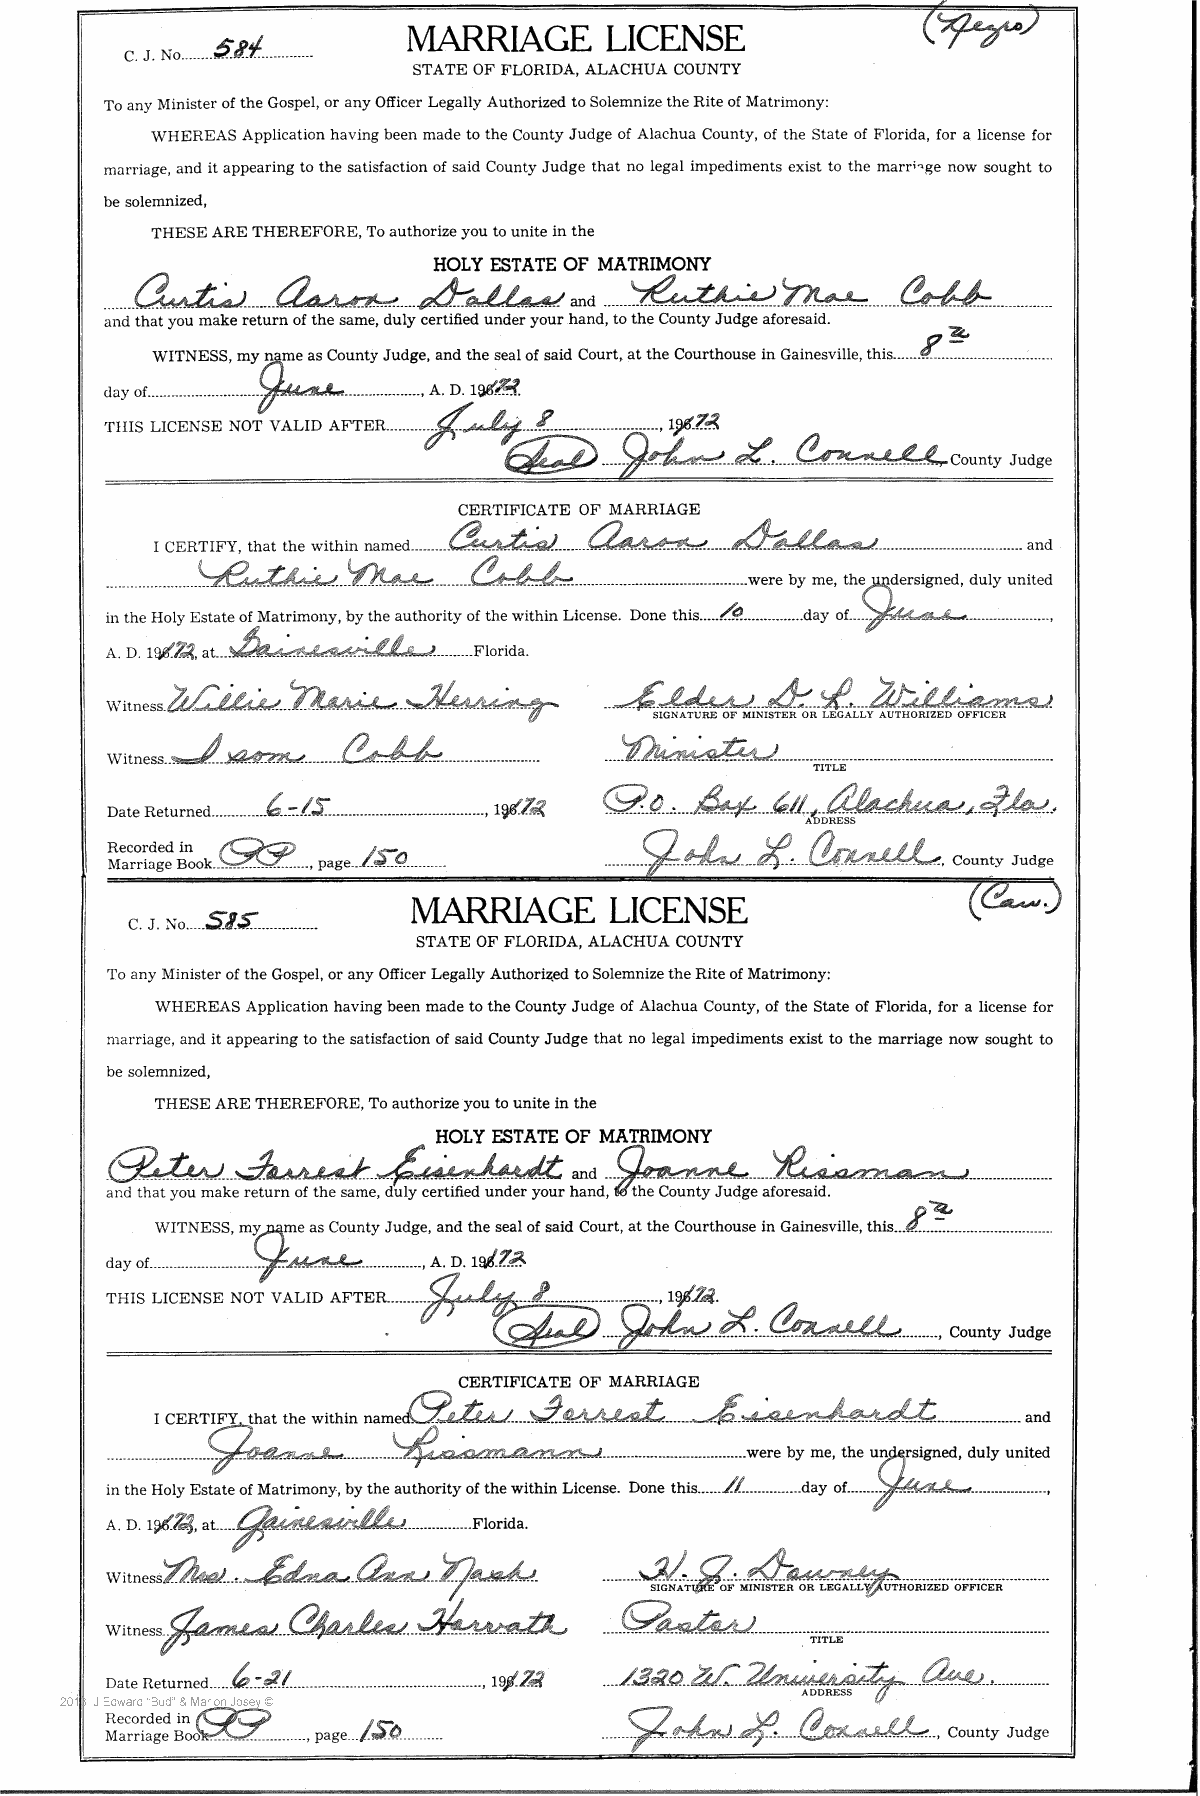 (Negro)
C. J. No. 584
MARRIAGE LICENSE
STATE OF FLORIDA, ALACHUA COUNTY
To any Minister of the Gospel, or any Officer Legally Authorized to Solemnize the Rite of Matrimony:
WHEREAS Application having been made to the County Judge of Alachua County, of the State of Florida, for a license for
marriage, and it appearing to the satisfaction of said County Judge that no legal impediments exist to the marriage now sought to
be solemnized,
THESE ARE THEREFORE, To authorize you to unite in the
HOLY ESTATE OF MATRIMONY
Curtis Aaron Dallas and Ruthie Mae Cobb
and that you make return of the same, duly certified under your hand, to the County Judge aforesaid.
WITNESS, my name as County Judge, and the seal of said Court, at the Courthouse in Gainesville, this 8th
day of June, A. D. 1972
THIS LICENSE NOT VALID AFTER July 8, 1972
(Seal) John L. Connell County Judge
CERTIFICATE OF MARRIAGE
I CERTIFY, that the within named Curtis Aaron Dallas and
Ruthie Mae Cobb were by me, the undersigned, duly united
in the Holy Estate of Matrimony, by the authority of the within License. Done this 10 day of June,
A. D. 1972, at Gainesville Florida.
Witness Willie Marie Herring Elder D. L. Williams
SIGNATURE OF MINISTER OR LEGALLY AUTHORIZED OFFICER
Witness Isom Cobb Minister
TITLE
Date Returned 6-15, 1972 P.O. Box 611, Alachua, Fla.
ADDRESS
Recorded in
Marriage Book PP, page 150 John L. Connell, County Judge
(Cau.)
C. J. No. 585
MARRIAGE LICENSE
STATE OF FLORIDA, ALACHUA COUNTY
To any Minister of the Gospel, or any Officer Legally Authorized to Solemnize the Rite of Matrimony:
WHEREAS Application having been made to the County Judge of Alachua County, of the State of Florida, for a license for
marriage, and it appearing to the satisfaction of said County Judge that no legal impediments exist to the marriage now sought to
be solemnized,
THESE ARE THEREFORE, To authorize you to unite in the
HOLY ESTATE OF MATRIMONY
Peter Forrest Eisenhardt and Joanne Rissman
and that you make return of the same, duly certified under your hand, to the County Judge aforesaid.
WITNESS, my name as County Judge, and the seal of said Court, at the Courthouse in Gainesville, this 8th
day of June, A. D. 1972
THIS LICENSE NOT VALID AFTER July 8, 1972.
(Seal) John L. Connell, County Judge
CERTIFICATE OF MARRIAGE
I CERTIFY, that the within named Peter Forrest Eisenhardt and
Joanne Rissmann were by me, the undersigned, duly united
in the Holy Estate of Matrimony, by the authority of the within License. Done this 11 day of June,
A. D. 1972, at Gainesville Florida.
Witness Mrs. Edna Ann Nash H. J. Downey
SIGNATURE OF MINISTER OR LEGALLY AUTHORIZED OFFICER
Witness James Charles Horvath Pastor
TITLE
Date Returned 6-21, 1972 1320 W. University Ave.
ADDRESS
J Edward "Bud" & Marion Josey ©
Recorded in
Marriage Book PP, page 150 John L. Connell, County Judge